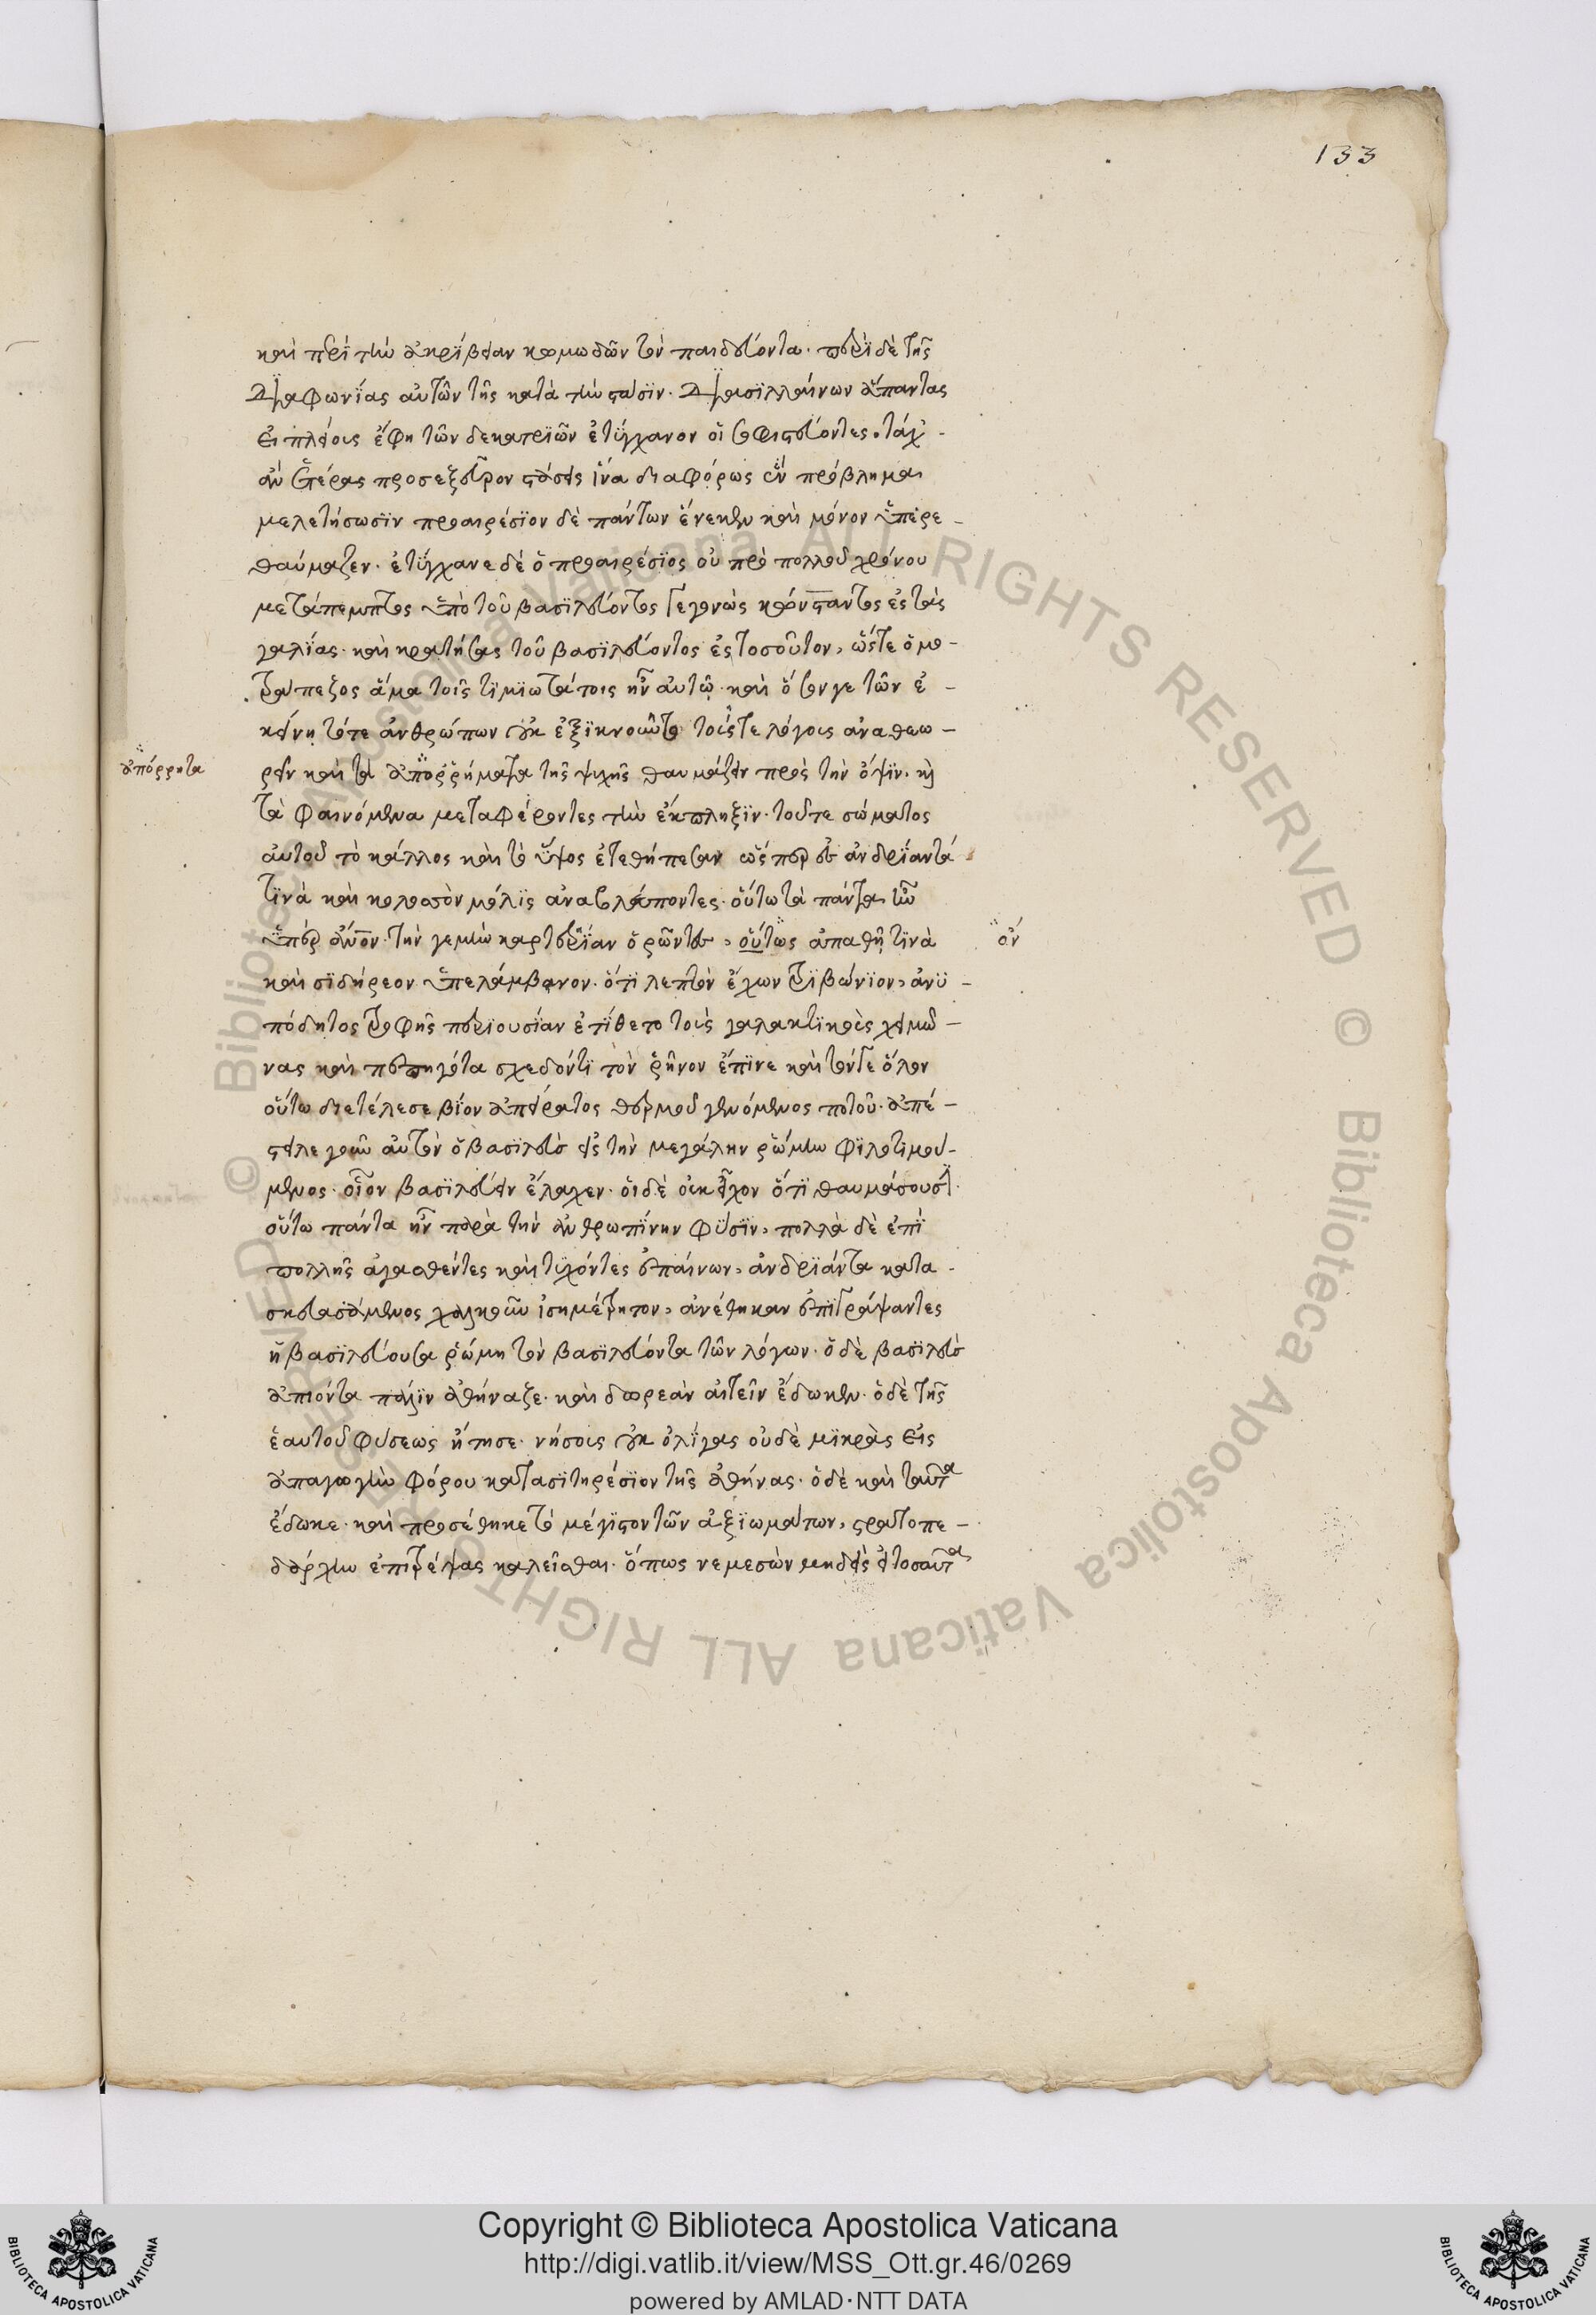 133
καὶ περὶ τὴν ἀκρίβειαν κωμωδῶν τὸν παιδεύοντα. περὶ δὲ τῆς
διαφωνίας αὐτῶν τῆς κατὰ τὴν στάσϊν. διασϊλλαίνων ἅπαντας
εἰ πλείοις ἔφη τῶν δεκατρϊῶν ἐτύγχανον οἱ σοφιστεύοντες. τάχ᾽
ἂν ἑτέρας προσεξεῦρον στάσεις ἵνα διαφόρως ἓν πρόβλημα
μελετήσωσϊν προαιρέσϊον δὲ πάντων ἕνεκεν καὶ μόνον ὑπερε-
θαύμαζεν. ἐτύγχανε δὲ ὁ προαιρέσϊος οὐ πρὸ πολλοῦ χρόνου
μετάπεμπτος ὑπὸ τοῦ βασϊλεύοντος γεγονὼς κώνσταντος ἐς τὰς
γαλίας. καὶ κρατήσας τοῦ βασϊλεύοντος ἐς τοσοῦτον, ὥστε ὁμο-
τράπεζος ἅμα τοῖς τϊμϊωτάτοις ἦν αὐτῷ. καὶ ὅσον γε τῶν ἐ-
κείνῃ τότε ἀνθρώπων οὐκ ἐξϊκνοῦντο τοῖς τε λόγοις ἀναθεω-
ἀπόρρητα
ρεῖν καὶ τὰ ἀπορρήματα τῆς ψυχῆς θαυμάζειν πρὸς τὴν ὄψϊν. καὶ
τὰ φαινόμενα μεταφέροντες τὴν ἔκπληξϊν. τοῦτε σώματος
αὐτοῦ τὸ κάλλος καὶ τὸ ὕψος ἐτεθήπεσαν ὥσπερ εἰς ἀνδρϊάντά
τϊνὰ καὶ κολοσσὸν μόλϊς ἀναβλέποντες. οὕτω τὰ πάντα ἦν
ὑπὲρ ἄνθρωπον. τὴν γε μὴν καρτερίαν ὁρῶντες, οὕτως ἀπαθῆ τϊνὰ
ὄν
καὶ σϊδήρεον ὑπελάμβανον. ὅτϊ λεπτὸν ἔχων τρϊβώνϊον, ἀνϋ-
πόδητος τρυφῆς περϊουσϊαν ἐτίθετο τοὺς γαλακτϊκοὺς χειμῶ-
νας καὶ πεπηγότα σχεδόντϊ τὸν ῥῆνον ἔπϊνε καὶ τόντε ὅλον
οὕτω διετέλεσε βίον ἀπείρατος θερμοῦ γενόμενος ποτοῦ. ἀπέ-
στειλε γοῦν αὐτὸν ὁ βασϊλεὺς εἰς τὴν μεγάλην ῥώμην φϊλοτιμού-
μενος. οἷον βασϊλεύειν ἔλαχεν. οἱ δὲ οὐκ εἶχον ὅτϊ θαυμάσουσϊ.
οὕτω πάντα ἦν παρὰ τὴν ἀνθρωπίνην φύσϊν, πολλὰ δὲ ἐπὶ
πολλῆς ἀγασθέντες καὶ τυχόντες ἐπαίνων, ἀνδρϊάντα κατα-
σκευασάμενος χαλκοῦν ἰσημέτρητον, ἀνέθηκαν ἐπϊγράψαντες
ἡ βασϊλεύουσα ῥώμη τὸν βασϊλεύοντα τῶν λόγων. ὁ δὲ βασϊλεὺς
ἀπιόντα πάλϊν ἀθήναζε. καὶ δωρεὰν αἰτεῖν ἔδωκεν. ὁ δὲ τῆς
ἑαυτοῦ φύσεως ᾔτησε. νήσοις οὐκ ὀλίγας οὐδὲ μϊκρὰς εἰς
ἀπαγωγὴν φόρου κατασϊτηρέσϊον τῆς ἀθήνας. ὁ δὲ καὶ ταῦτα
ἔδωκε. καὶ προσέθηκε τὸ μέγϊστον τῶν ἀξϊωμάτων, στρατοπε-
δάρχην ἐπιτρέψας καλεῖσθαι. ὅπως νεμεσῶν μηδεὶς εἰ τοσαῦτα